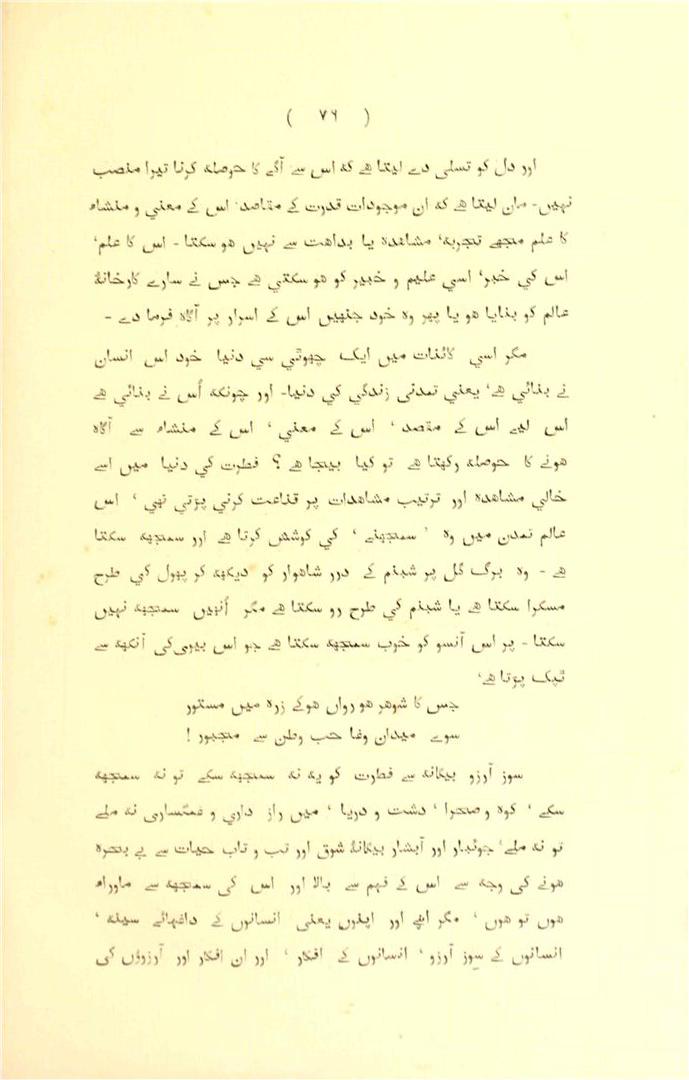 ( ۷۶ )
اور دل کو تسلی دے لیتا ہے کہ اس سے آگے کا حوصلہ کرنا تیرا منصب
نہیں۔ مان لیتا ہے کہ ان موجودات قدرت کے مقاصد٬ اس کے معنی و منشاء
کا علم مجھے تجربہ٬ مشاہدہ یا بداہت سے نہیں ہو سکتا ۔ اس کا علم٬
اس کی خبر٬ اسی علیم و خبیر کو ہو سکتی ہے جس نے سارے کارخانۂ
عالم کو بنایا ہو یا پھر وہ خود جنہیں اس کے اسرار پر آگاہ فرما دے ۔
مگر اسی کائنات میں ایک چھوٹی سی دنیا خود اس انسان
نے بنائی ہے٬ یعنی تمدنی زندگی کی دنیا۔ اور چونکہ اُس نے بنائی ہے
اس لیے اس کے مقصد ٬ اس کے معنی ٬ اس کے منشاء سے آگاہ
ہونے کا حوصلہ رکھتا ہے تو کیا بیجا ہے ؟ فطرت کی دنیا میں اسے
خالی مشاہدہ اور ترتیب مشاہدات پر قناعت کرنی پڑتی تھی ٬ اس
عالم تمدن میں وہ ' سمجھنے ' کی کوشش کرتا ہے اور سمجھ سکتا
ہے ۔ وہ برگ گل پر شبنم کے درر شاہوار کو دیکھ کر پھول کی طرح
مسکرا سکتا ہے یا شبنم کی طرح رو سکتا ہے مگر اُنہیں سمجھ نہیں
سکتا ۔ پر اس آنسو کو خوب سمجھ سکتا ہے جو اس بیوی کی آنکھ سے
ٹپک پڑتا ہے٬
جس کا شوہر ہو رواں ہوکے زرہ میں مستور
سوے میدان وغا حب وطن سے مجبور !
سوز آرزو بیگانہ سے فطرت کو یہ نہ سمجھ سکے تو نہ سمجھ
سکے ٬ کوہ و صحرا ٬ دشت و دریا ٬ میں راز داری و غمگساری نہ ملے
تو نہ ملے٬ جوئبار اور آبشار بیگانۂ شوق اور تب و تاب حیات سے بے بہرہ
ہونے کی وجہ سے اس کے فہم سے بالا اور اس کی سمجھ سے ماوراء
ہوں تو ہوں ٬ مگر اپنے اور اپنوں یعنی انسانوں کے داغہائے سینہ ٬
انسانوں کے سوز آرزو ٬ انسانوں کے افکار ٬ اور ان افکار اور آرزوؤں کی